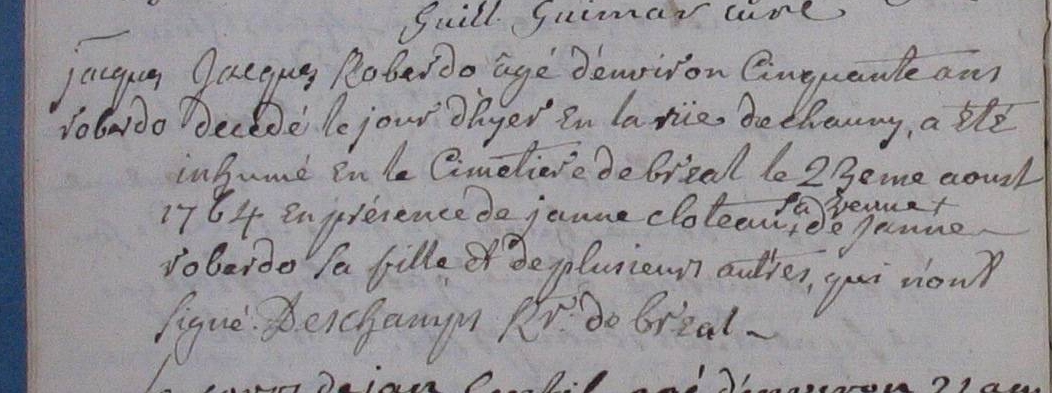 Guill. Guimar curé
jacques Jacques Robardo âgé d'environ Cinquante ans
robardo decedé le jour d'hyer En la rüe de chauny, a Eté
inhumé En le Cimetiere de breal le 23eme aoust
1764 En présence de janne cloteaux sa veuve + de Janne
robardo sa fille & de plusieurs autres, qui n'ont
signé. Deschamps Rr. de bréal
Le corps de jan agé d'environ 21 ans